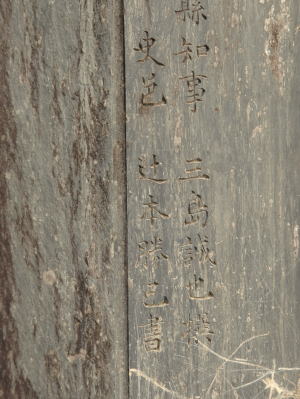 縣知事 三島誠也撰
史邑 辻本勝己書